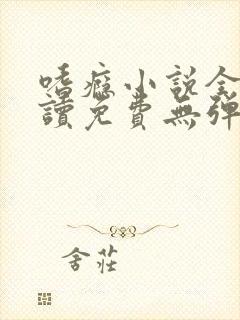 嗜癮小說全
讀免費無彈
舍莊